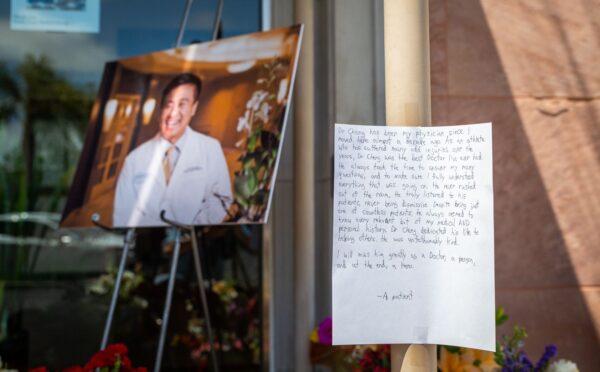 Dr Cheng has been my physician since I
moved here almost a decade ago. As an athlete
who has suffered many odd injuries over the
years, Dr Cheng was the best Doctor I've ever had.
He always took the time to answer my many
questions, and to make sure I fully understood
everything that was going on. He never rushed
out of the room. He truly listened to his
patients, never being dismissive. Despite being just
one of countless patients, he always seemed to
know every minutest bit of my medical AND
personal history. Dr Cheng dedicated his life to
helping others. He was unfathomably kind.
I will miss him greatly as a Doctor, a person,
and at the end, a hero.
-A patient